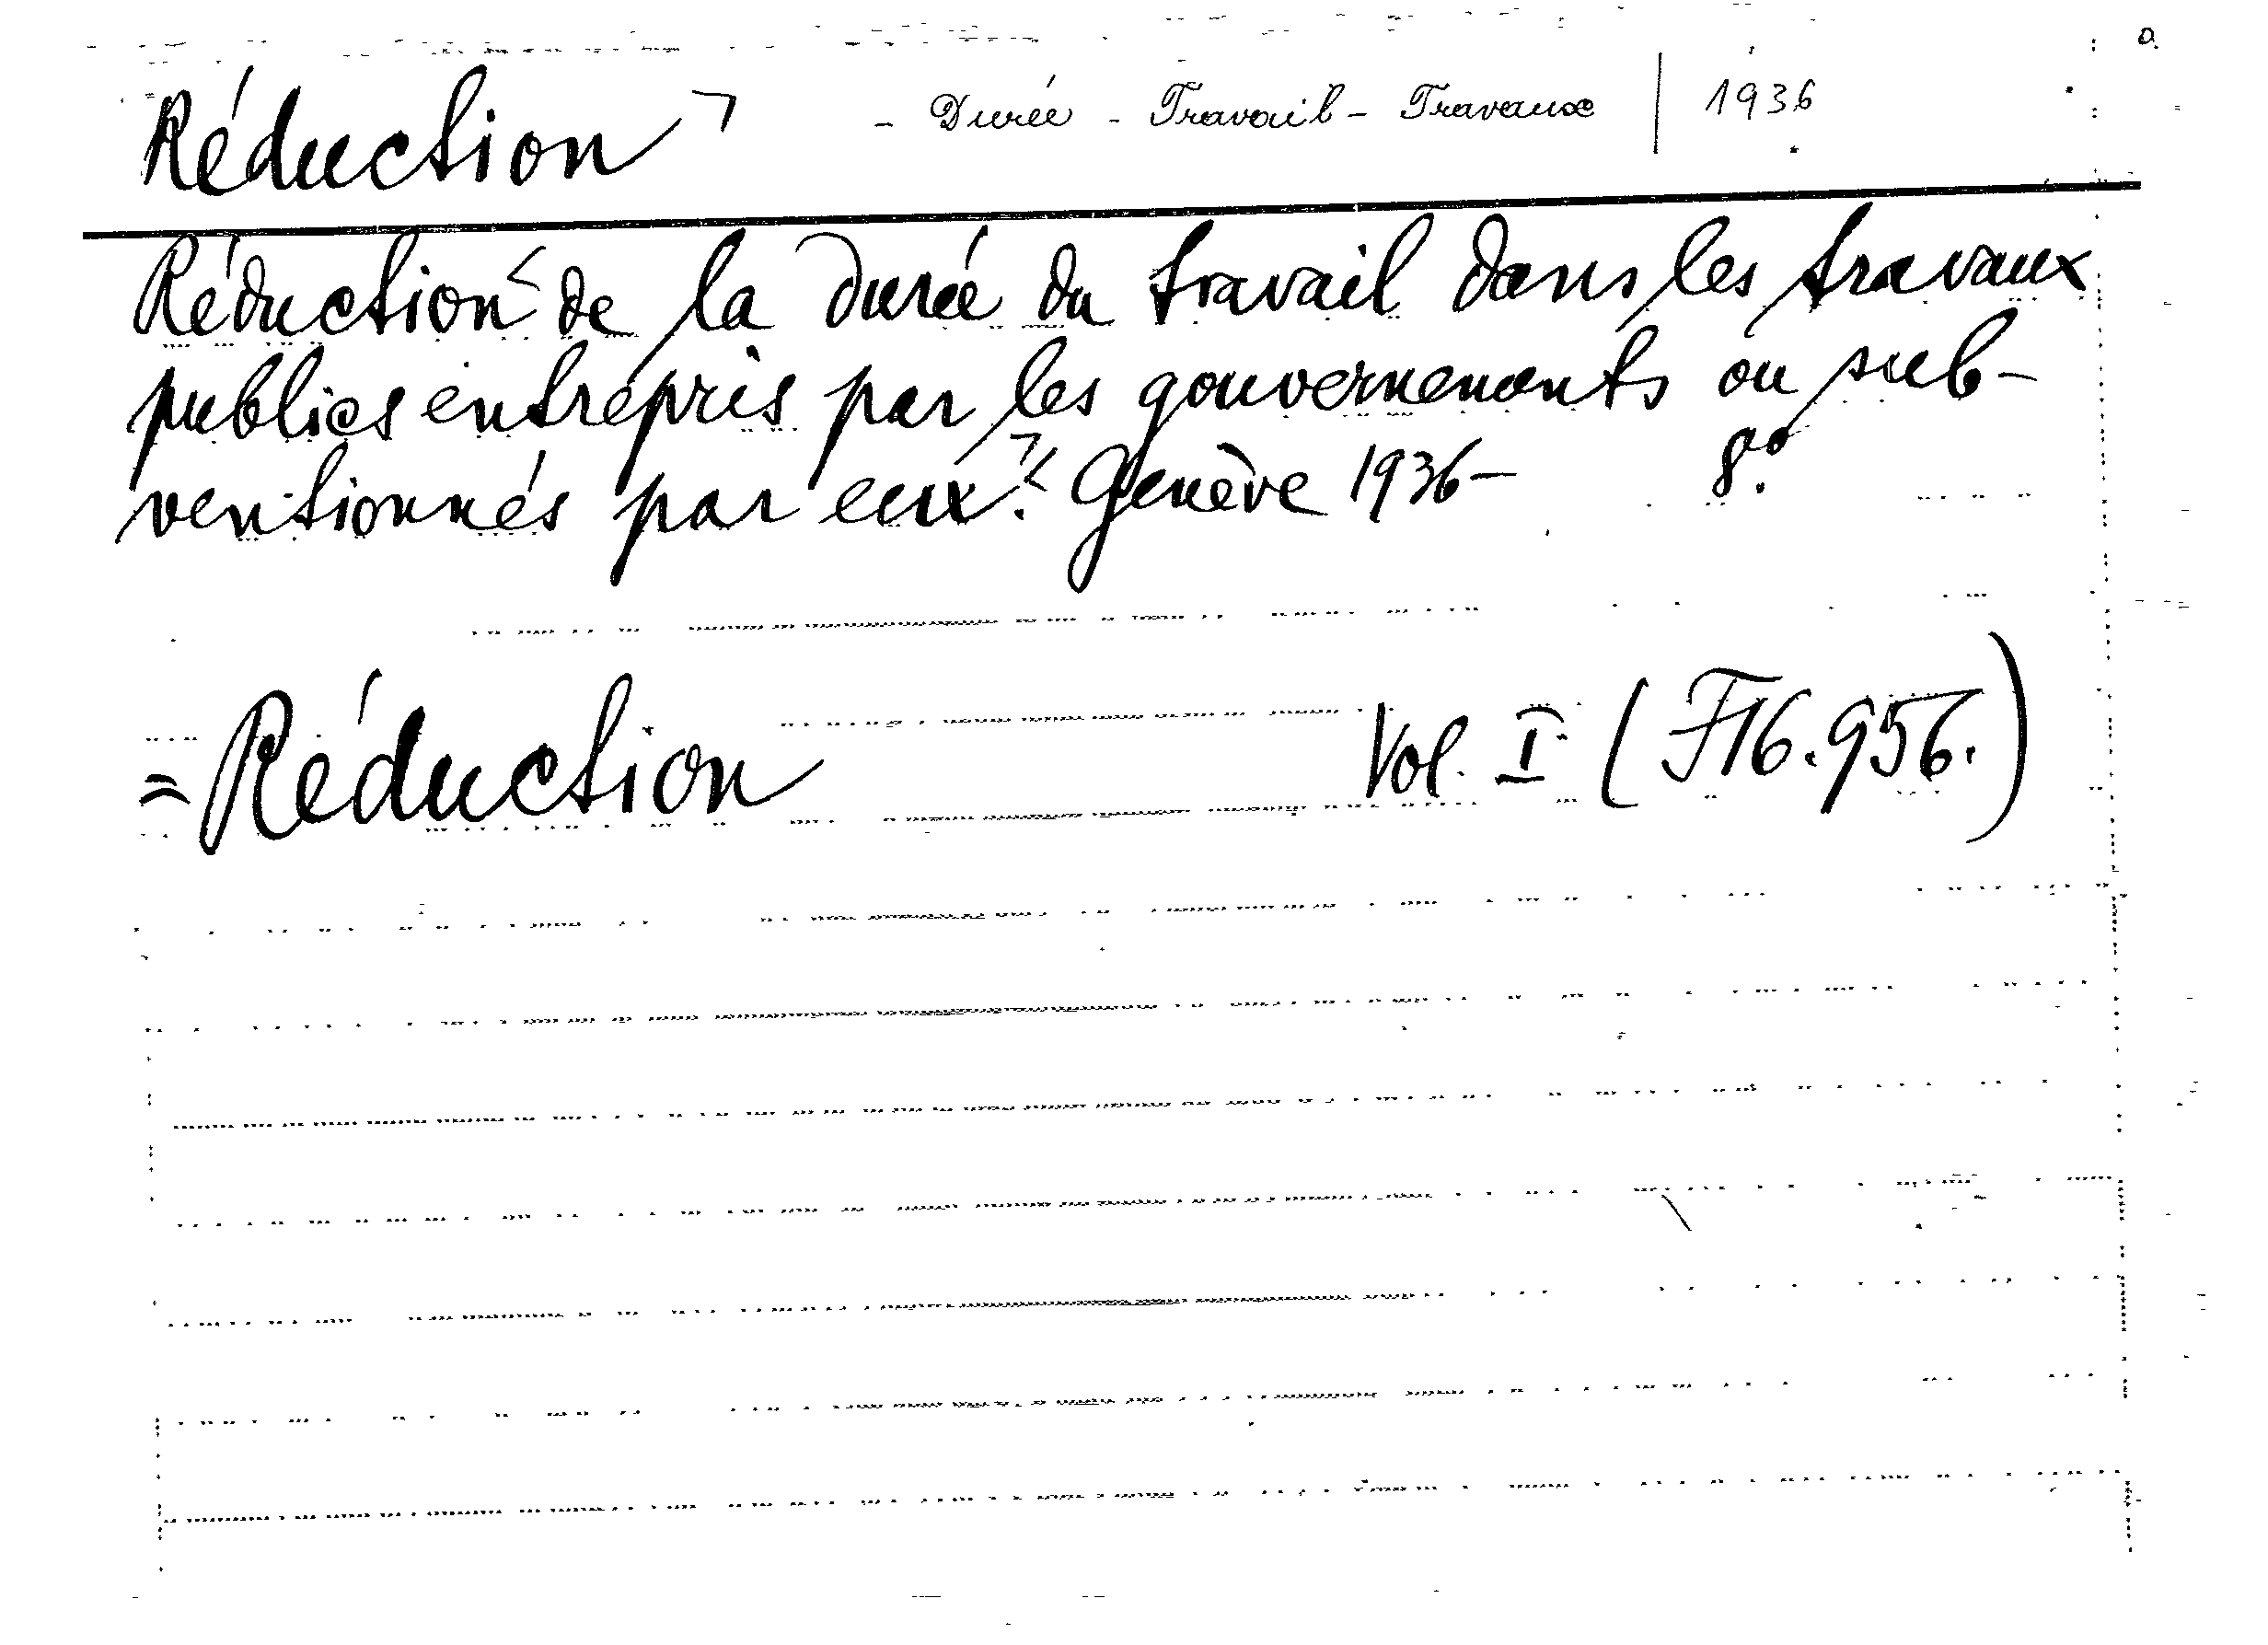 Réduction ¬ - Durée - Travail - Travaux | 1936
Réduction < de la durée du travail dans les travaux
publics entrepris par les gouvernements ou sub-
ventionnés par eux ¬. < Genève 1936 - 8°.
= Réduction Vol. I (F16.956.)